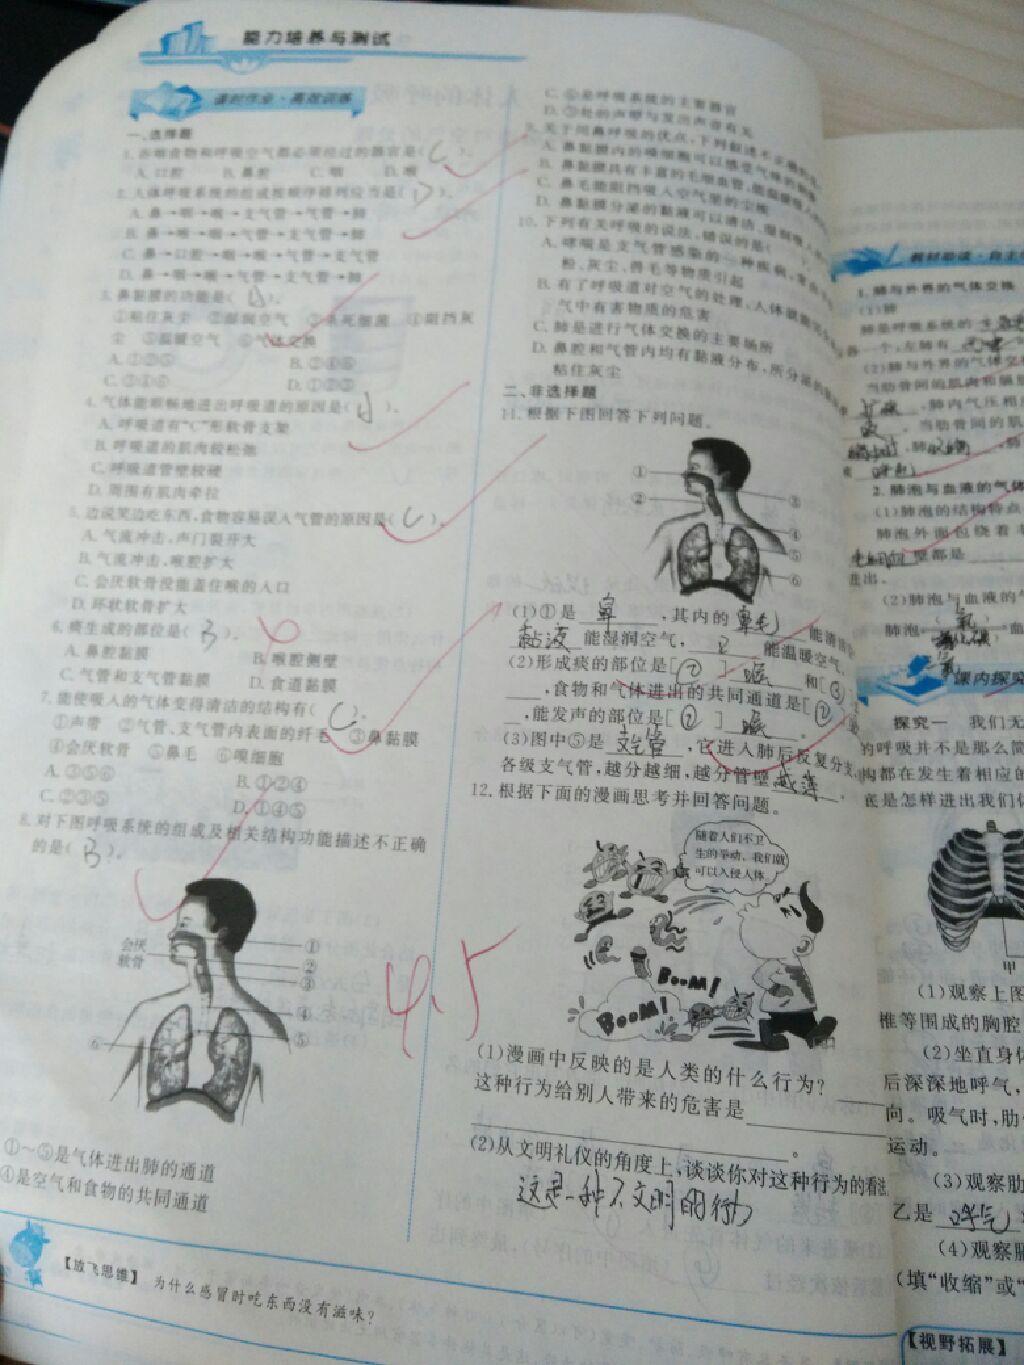 能力培养与测试
课时作业·高效训练
一、选择题
1.吞咽食物和呼吸空气都必须经过的器官是( C )。
A.口腔 B.鼻腔 C.咽 D.喉
2.人体呼吸系统的组成按顺序排列应当是( D )。
A.鼻→咽→喉→支气管→气管→肺
B.鼻→喉→咽→气管→支气管→肺
C.鼻→口腔→咽→喉→气管→支气管
D.鼻→咽→喉→气管→支气管→肺
3.鼻黏膜的功能是( )。
①粘住灰尘 ②湿润空气 ③杀死细菌 ④阻挡灰
尘 ⑤温暖空气 ⑥气体交换
4.气体能顺畅地进出呼吸道的原因是( )。
A.呼吸道有“C”形软骨支架
B.呼吸道的肌肉较松弛
C.呼吸道管壁较硬
D.周围有肌肉牵拉
5.边说笑边吃东西,食物容易误入气管的原因是( C )。
A.气流冲击,声门裂开大
B.气流冲击,喉腔扩大
C.会厌软骨没能盖住喉的入口
D.环状软骨扩大
6.痰生成的部位是( B )。
A.鼻腔黏膜 B.喉腔侧壁
C.气管和支气管黏膜 D.食道黏膜
7.能使吸入的气体变得清洁的结构有( C )。
①声带 ②气管、支气管内表面的纤毛 ③鼻黏膜
④会厌软骨 ⑤鼻毛 ⑥嗅细胞
A.③⑤⑥ B.①②④
C.②③⑤ D.①④⑤
8.对下图呼吸系统的组成及相关结构功能描述不正确
的是( B )。
会厌
软骨
①
②
③
④
⑤
⑥
4.5
①～⑤是气体进出肺的通道
④是空气和食物的共同通道
【放飞思维】 为什么感冒时吃东西没有滋味？
C.⑥是呼吸系统的主要器官
D.③处的声带与发出声音有关
9.关于用鼻呼吸的优点,下列叙述不正确的
A.鼻黏膜内的嗅细胞可以感受气味的刺激
B.鼻黏膜具有丰富的毛细血管,能温暖吸入的
C.鼻毛能阻挡吸入空气里的尘埃
D.鼻黏膜分泌的黏液可以清洁、湿润吸入
10.下列有关呼吸的说法,错误的是(
A.哮喘是支气管感染的一种疾病,常由
粉、灰尘、兽毛等物质引起
B.有了呼吸道对空气的处理,人体就能完全
气中有害物质的危害
C.肺是进行气体交换的主要场所
D.鼻腔和气管内均有黏液分布,所分泌的
粘住灰尘
二、非选择题
11.根据下图回答下列问题。
①
②
③
④
⑤
⑥
(1)①是 鼻 ,其内的 鼻毛 能清洁
黏液 能湿润空气, 能温暖空气
(2)形成痰的部位是[ ② ] 喉 和[ ③ ]
,食物和气体进出的共同通道是[ ② ]
,能发声的部位是[ ② ] 喉 。
(3)图中⑤是 支气管 ,它进入肺后反复分支
各级支气管,越分越细,越分管壁 越薄 。
12.根据下面的漫画思考并回答问题。
随着人们不卫
生的举动,我们就
可以入侵人体
BOOM!
BOOM!
(1)漫画中反映的是人类的什么行为?
这种行为给别人带来的危害是
。
(2)从文明礼仪的角度上,谈谈你对这种行为的看法
这是一种不文明的行为
教材助读·自主
1.肺与外界的气体交换
(1)肺
肺是呼吸系统的
各一个,左肺有
(2)肺与外界的气体交
当肋骨间的肌肉和膈肌
,肺内气压相
。当肋骨间的肌
,肺
呼出
2.肺泡与血液的气体
(1)肺泡的结构特点
肺泡外面包绕着
壁都是
进出。
(2)肺泡与血液的气
肺泡 氧 血
课内探究
探究一 我们无
的呼吸并不是那么简
构都在发生着相应的
底是怎样进出我们
甲
(1)观察上图
椎等围成的胸腔
(2)坐直身体
后深深地呼气,
向。吸气时,肋
运动。
(3)观察肋
乙是 呼气
(4)观察膈
(填“收缩”或“
【视野拓展】